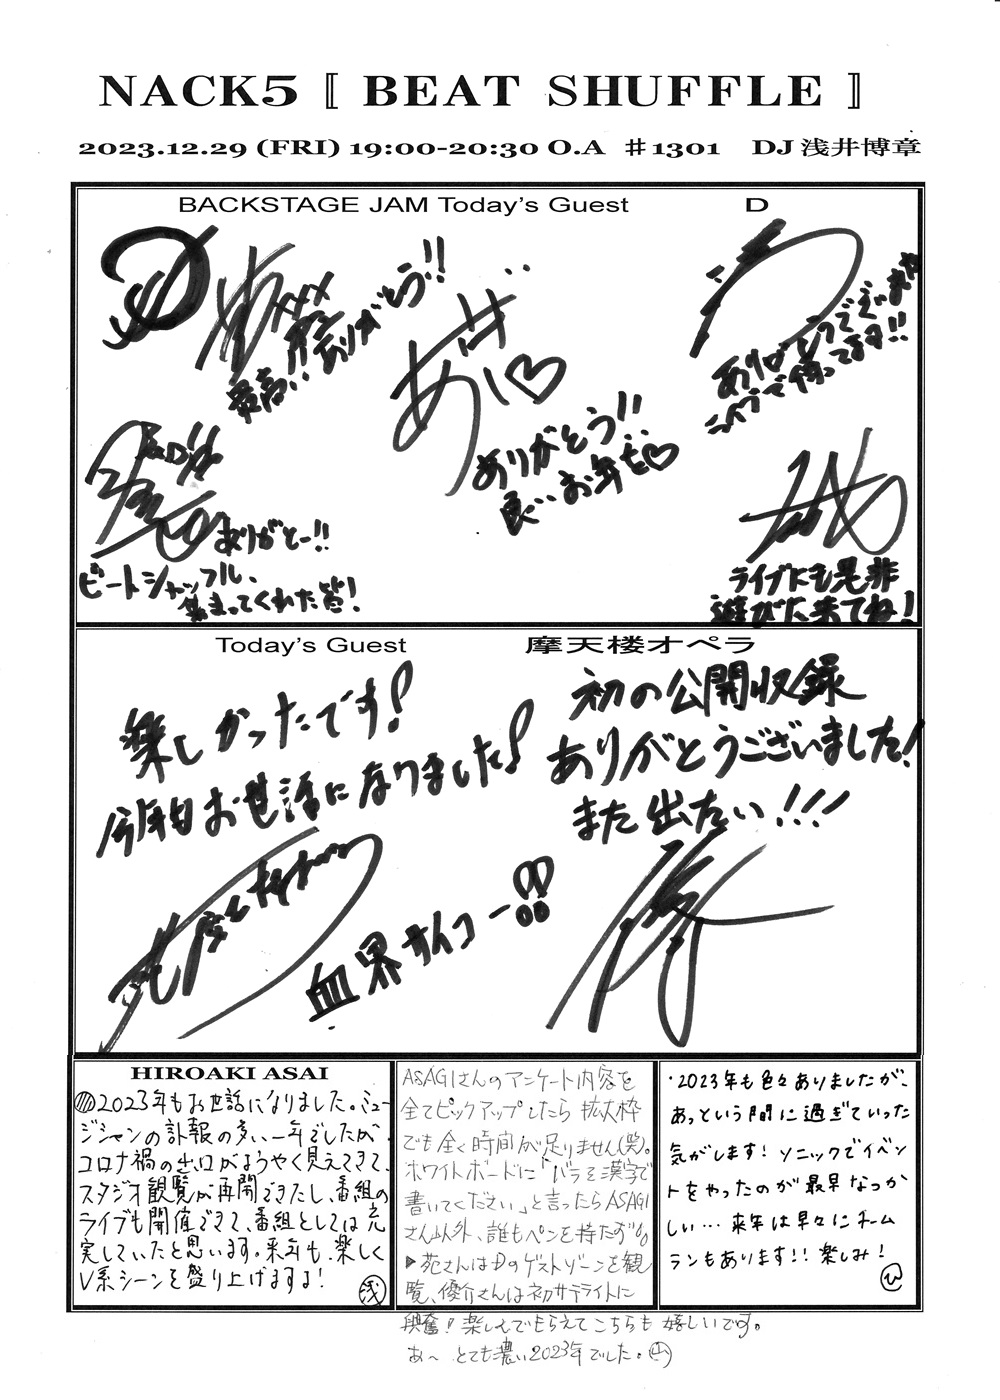 NACK5 『 BEAT SHUFFLE 』
2023.12.29 (FRI) 19:00-20:30 O.A ♯1301 DJ 浅井博章
BACKSTAGE JAM Today's Guest D
最高!! ありがとう!!
ありがとう!!
良いお年を♡
ありがとうございます
ライブで待ってます!!
ありがとー!!
ビートシャッフル、
集まってくれた皆!
ライブにも是非
遊びに来てね!
Today's Guest 摩天楼オペラ
楽しかったです!
今年もお世話になりました!
血界サイコー!!
初の公開収録
ありがとうございました!
また出たい!!!
HIROAKI ASAI
2023年もお世話になりました。ミュー
ジシャンの訃報の多い一年でしたが、
コロナ禍の出口がようやく見えてきて、
スタジオ観覧が再開できたし、番組の
ライブも開催できて、番組としては充
実していたと思います。来年も、楽しく
V系シーンを盛り上げますよ! 浅
ASAGIさんのアンケート内容を
全てピックアップしたら 拡大枠
でも全く時間が足りません(笑)。
ホワイトボードに「バラを漢字で
書いてください」と言ったらASAGI
さん以外、誰もペンを持たず%
▶苑さんはDのゲストゾーンを観
覧、優介さんは初サテライトに
興奮!楽しんでもらえてこちらも嬉しいです。
あ〜 とても濃い2023年でした。山
・2023年も色々ありましたが、
あっという間に過ぎていった
気がします! ソニックでイベン
トをやったのが最早なつか
しい… 来年は早々にチーム
ランもあります!! 楽しみ!
ひ